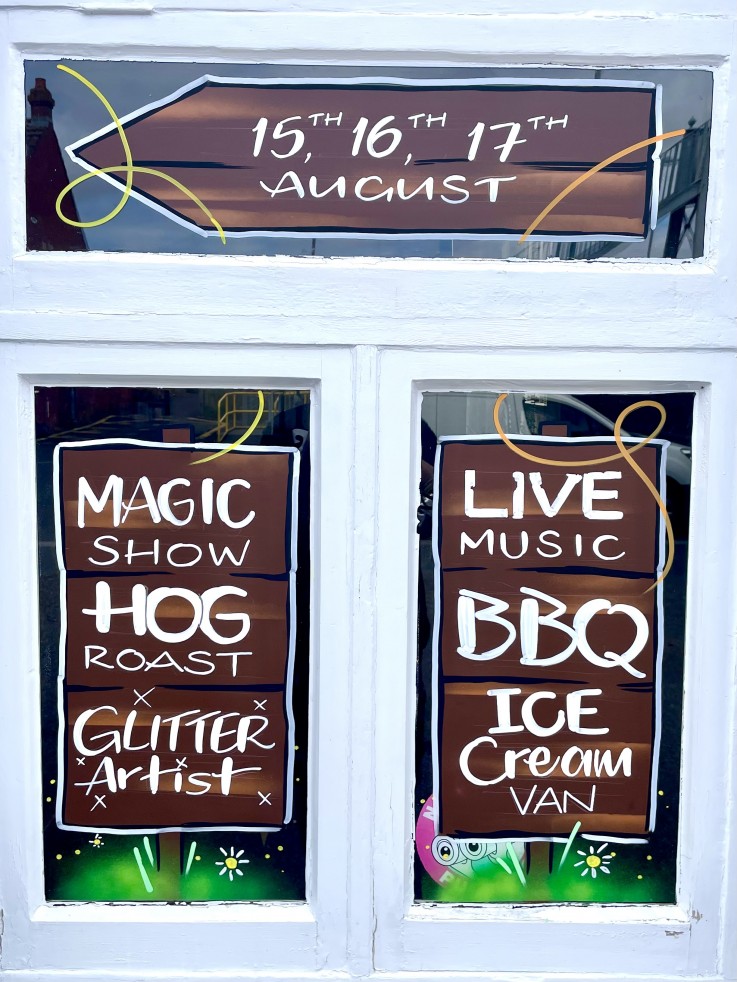 15TH, 16TH, 17TH
AUGUST
MAGIC
SHOW
HOG
ROAST
GLITTER
Artist
LIVE
MUSIC
BBQ
ICE
Cream
VAN